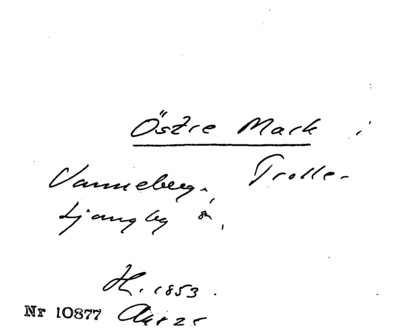 Östre Mark i
Vanneberga, Trolle-
Ljungby s.
H. 1853.
Nr 10877